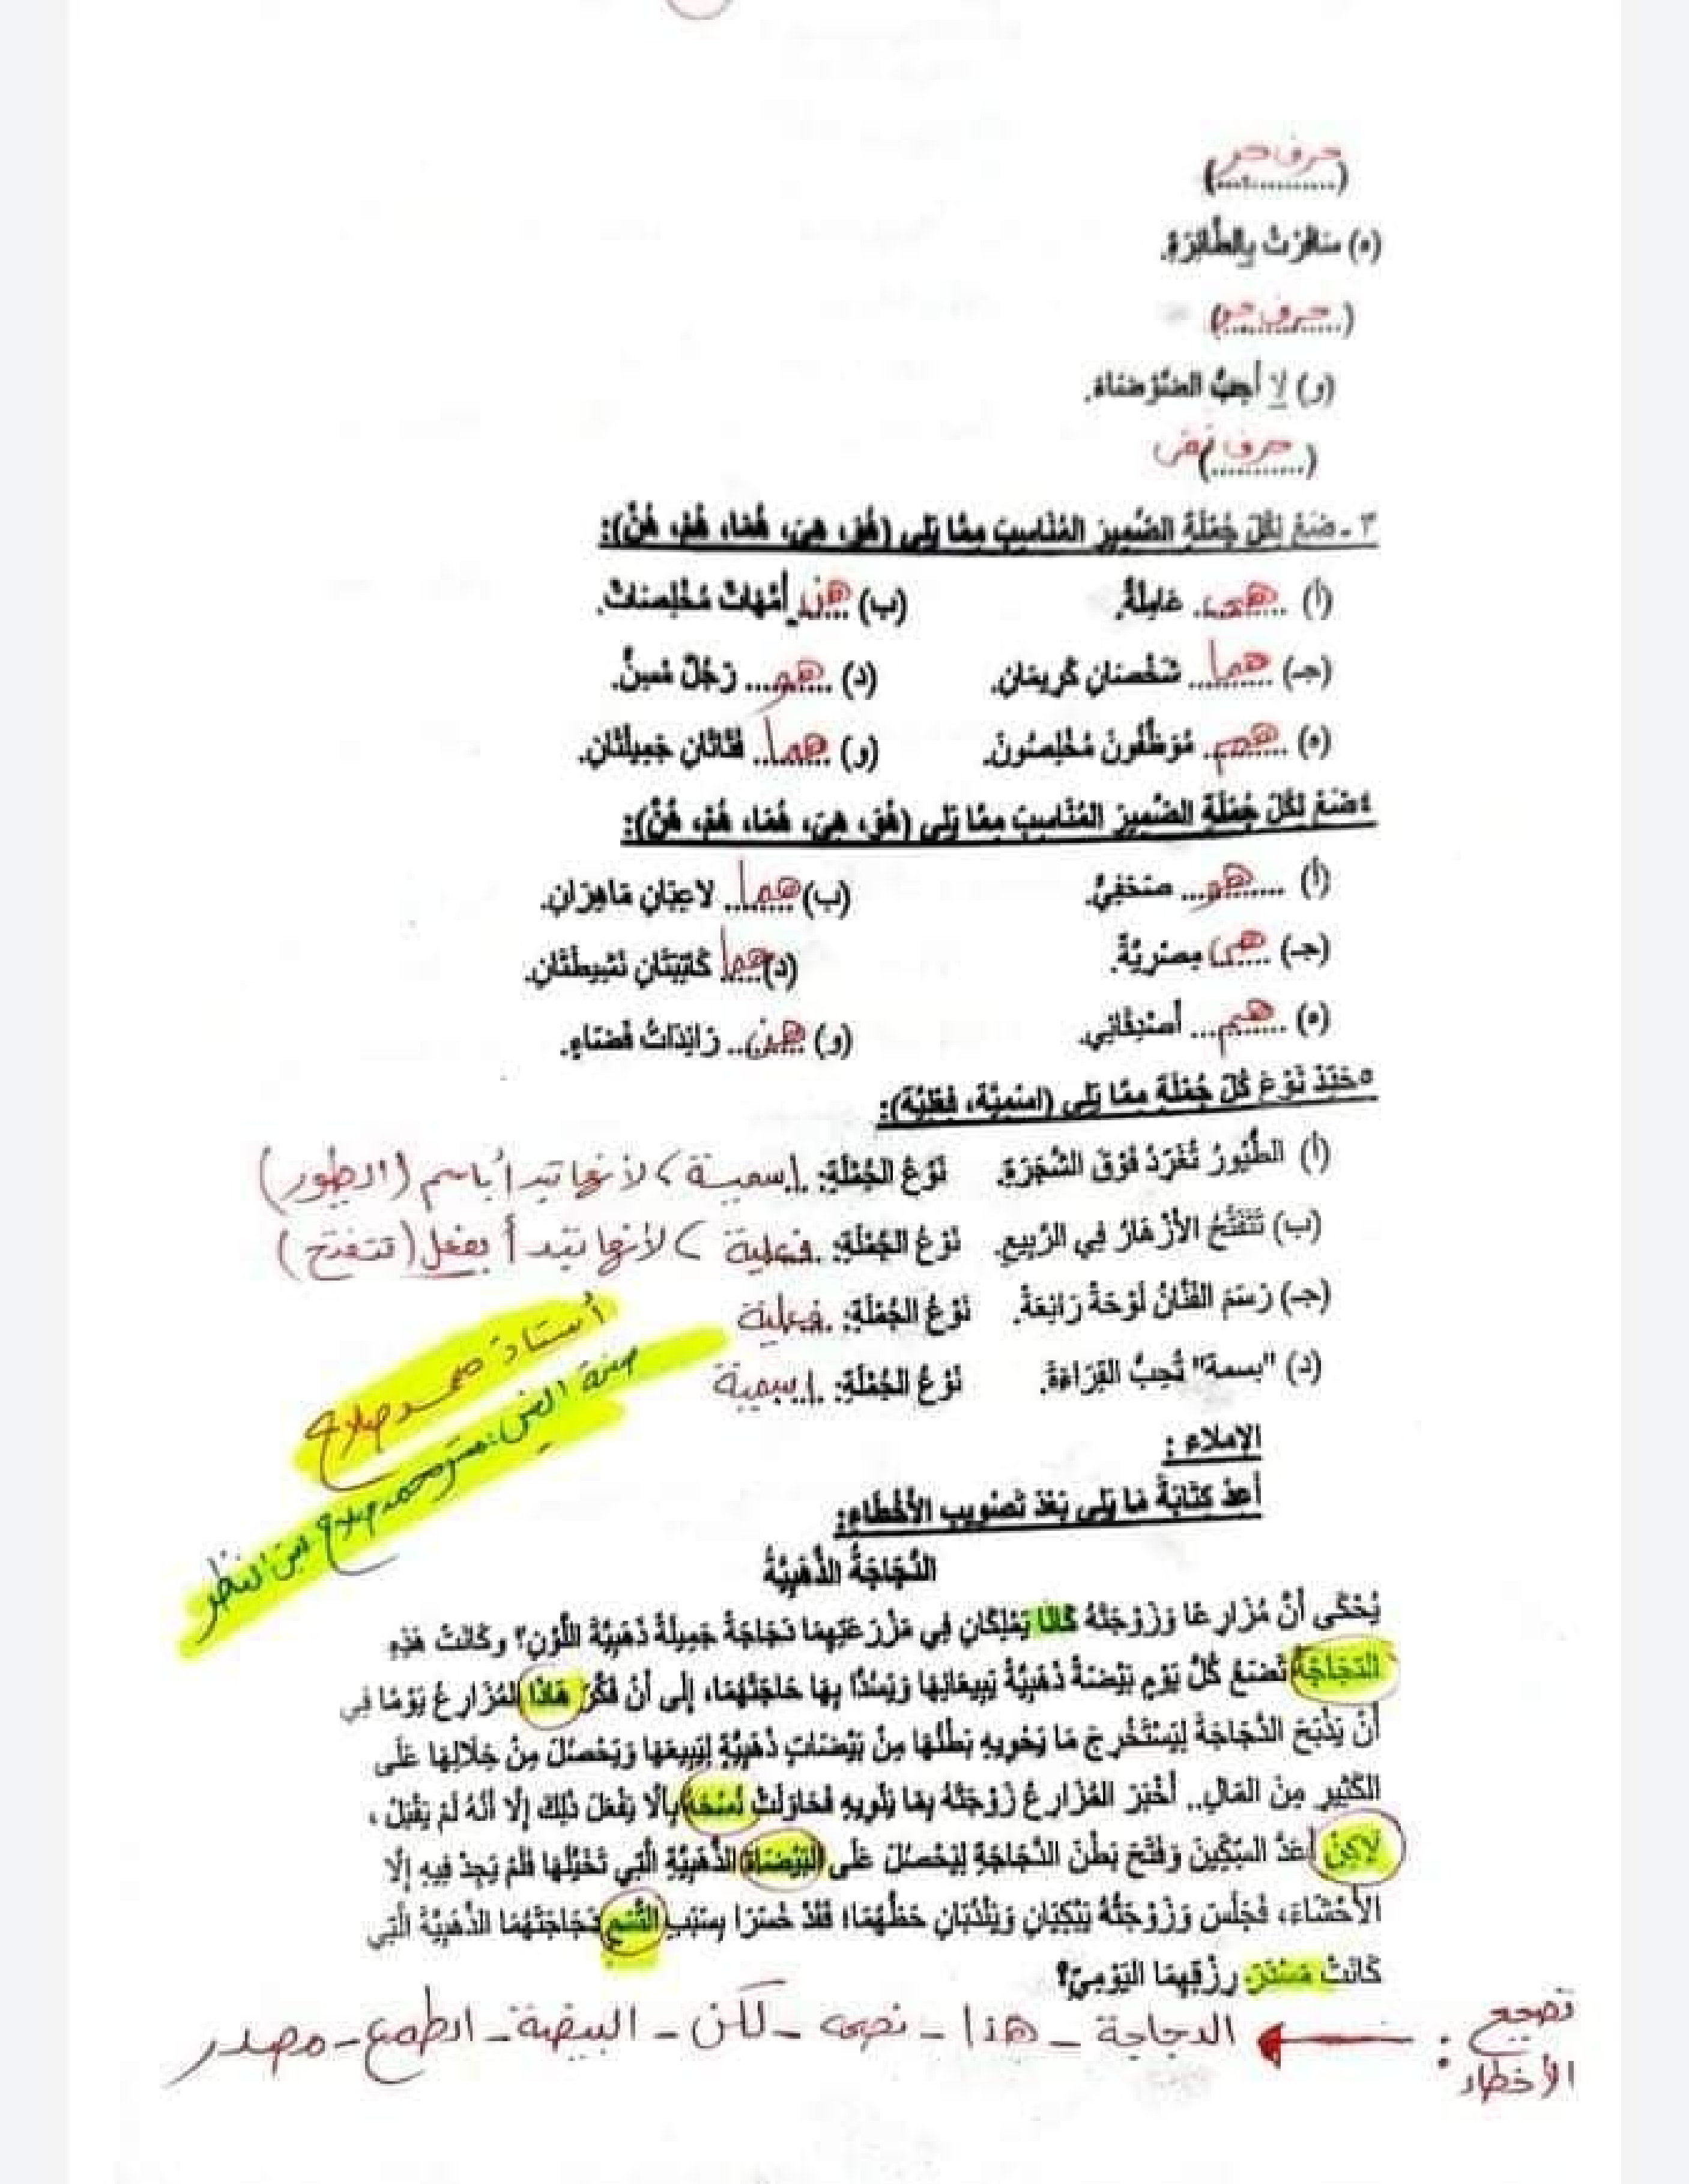 حرف جر
(............)
(ه) سَافَرْتُ بِالطَّائِرَةِ.
(حرف جر)
(و) لَا أُحِبُّ الضَّوْضَاءَ.
(حرف نفى)
٣ - ضَعْ لِكُلِّ جُمْلَةٍ الضَّمِيرَ الْمُنَاسِبَ مِمَّا يَلِي (هُوَ، هِيَ، هُمَا، هُمْ، هُنَّ):
(أ) ..هى.. عَامِلَةٌ. (ب) ..هن.. أُمَّهَاتٌ مُخْلِصَاتٌ.
(جـ) ..هما.. شَخْصَانِ كَرِيمَانِ. (د) ..هو.. رَجُلٌ مُسِنٌّ.
(ه) ..هم.. مُوَظَّفُونَ مُخْلِصُونَ. (و) ..هما.. فَتَاتَانِ جَمِيلَتَانِ.
٤ ضَعْ لِكُلِّ جُمْلَةٍ الضَّمِيرَ الْمُنَاسِبَ مِمَّا يَلِي (هُوَ، هِيَ، هُمَا، هُمْ، هُنَّ):
(أ) ..هو.. صَحَفِيٌّ. (ب) ..هما.. لَاعِبَانِ مَاهِرَانِ.
(جـ) ..هى.. مِصْرِيَّةٌ. (د) ..هما.. كَاتِبَتَانِ نَشِيطَتَانِ.
(ه) ..هم.. أَصْدِقَائِي. (و) ..هن.. رَائِدَاتُ فَضَاءٍ.
٥ حَدِّدْ نَوْعَ كُلِّ جُمْلَةٍ مِمَّا يَلِي (اسْمِيَّةٌ، فِعْلِيَّةٌ):
(أ) الطُّيُورُ تُغَرِّدُ فَوْقَ الشَّجَرَةِ. نَوْعُ الْجُمْلَةِ: اسمية > لأنها تبدأ باسم (الطيور)
(ب) تَتَفَتَّحُ الْأَزْهَارُ فِي الرَّبِيعِ. نَوْعُ الْجُمْلَةِ: فعلية > لأنها تبدأ بفعل (تتفتح)
(جـ) رَسَمَ الْفَنَّانُ لَوْحَةً رَائِعَةً. نَوْعُ الْجُمْلَةِ: فعلية
(د) "بسمة" تُحِبُّ الْقِرَاءَةَ. نَوْعُ الْجُمْلَةِ: اسمية
أستاذ محمد صلاح
محمد صلاح
الإملاء :
أَعِدْ كِتَابَةَ مَا يَلِي بَعْدَ تَصْوِيبِ الْأَخْطَاءِ:
الدَّجَاجَةُ الذَّهَبِيَّةُ
يُحْكَى أَنَّ مُزَارِعًا وَزَوْجَتَهُ كَانَا يَمْلِكَانِ فِي مَزْرَعَتِهِمَا دَجَاجَةً جَمِيلَةً ذَهَبِيَّةَ اللَّوْنِ؟ وكَانَتْ هَذِهِ
الدَجَاجَةُ تَضَعُ كُلَّ يَوْمٍ بَيْضَةً ذَهَبِيَّةً يَبِيعَانِهَا وَيَسُدَّا بِهَا حَاجَتَهُمَا، إِلَى أَنْ فَكَّرَ هَاذَا الْمُزَارِعُ يَوْمًا فِي
أَنْ يَذْبَحَ الدَّجَاجَةَ لِيَسْتَخْرِجَ مَا يَحْوِيهِ بَطْنُهَا مِنْ بَيْضَاتٍ ذَهَبِيَّةٍ لِيَبِيعَهَا وَيَحْصُلَ مِنْ خِلَالِهَا عَلَى
الْكَثِيرِ مِنَ الْمَالِ.. أَخْبَرَ الْمُزَارِعُ زَوْجَتَهُ بِمَا يَنْوِيهِ فَحَاوَلَتْ نُسْحَهُ بِأَلَّا يَفْعَلَ ذَلِكَ إِلَّا أَنَّهُ لَمْ يَقْبَلْ ،
لَاكِنْ أَعَدَّ السِّكِّينَ وَفَتَحَ بَطْنَ الدَّجَاجَةِ لِيَحْصُلَ عَلَى الْبَيْضَاة الذَّهَبِيَّةِ الَّتِي تَخَيَّلَهَا فَلَمْ يَجِدْ فِيهِ إِلَّا
الْأَحْشَاءَ، فَجَلَسَ وَزَوْجَتُهُ يَبْكِيَانِ وَيَنْدُبَانِ حَظَّهُمَا؛ فَقَدْ خَسِرَا بِسَبَبِ دَجَاجَتَهُمَا الذَّهَبِيَّةَ الَّتِي
كَانَتْ مَسْدَرَ رِزْقِهِمَا الْيَوْمِيِّ؟
تصحيح الأخطاء : الدجاجة - هذا - نصحه - لكن - البيضة - الطمع - مصدر